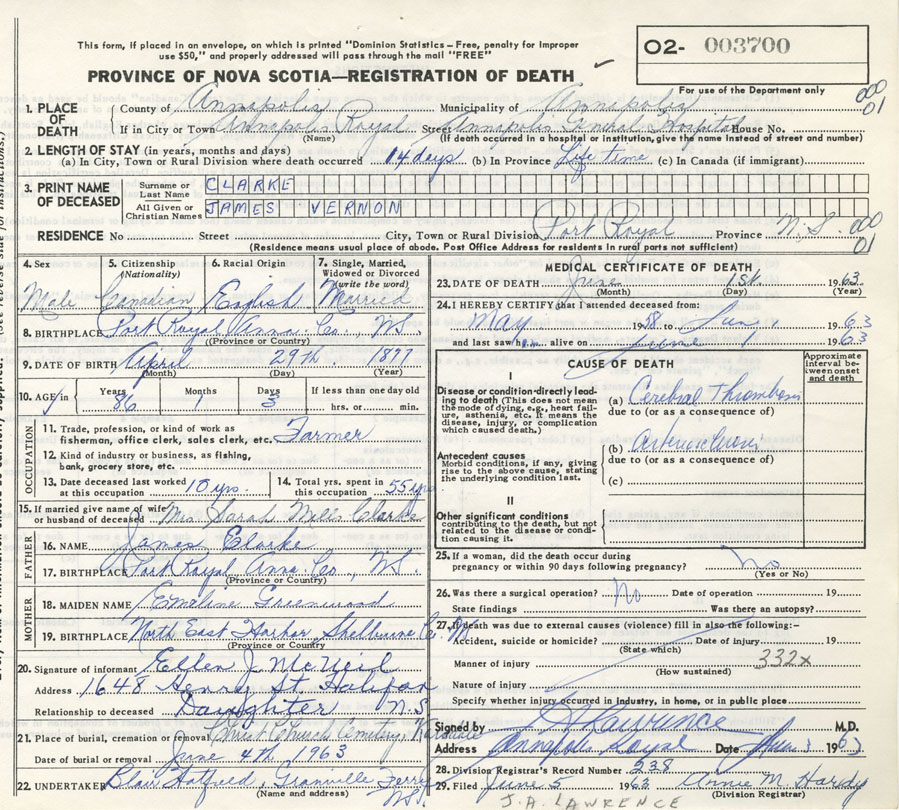 This form, if placed in an envelope, on which is printed "Dominion Statistics – Free, penalty for Improper
use $50," and properly addressed will pass through the mail "FREE"
PROVINCE OF NOVA SCOTIA—REGISTRATION OF DEATH
02- 003700
For use of the Department only
1. PLACE OF DEATH
County of Annapolis Municipality of Annapolis 000 01
If in City or Town Annapolis Royal Street Annapolis General Hospital House No.
(Name) (If death occurred in a hospital or institution, give the name instead of street and number)
2. LENGTH OF STAY (in years, months and days)
(a) In City, Town or Rural Division where death occurred 14 days (b) In Province Life time (c) In Canada (if immigrant)
3. PRINT NAME OF DECEASED
Surname or Last Name CLARKE
All Given or Christian Names JAMES VERNON
RESIDENCE No Street City, Town or Rural Division Port Royal Province N.S. 000 01
(Residence means usual place of abode. Post Office Address for residents in rural parts not sufficient)
4. Sex Male
5. Citizenship (Nationality) Canadian
6. Racial Origin English
7. Single, Married, Widowed or Divorced (write the word) Married
8. BIRTHPLACE Port Royal Anna. Co., NS
(Province or Country)
9. DATE OF BIRTH April 29th 1877
(Month) (Day) (Year)
10. AGE in Years 86 Months 1 Days 3 If less than one day old
hrs. or min.
OCCUPATION
11. Trade, profession, or kind of work as
fisherman, office clerk, sales clerk, etc. Farmer
12. Kind of industry or business, as fishing,
bank, grocery store, etc.
13. Date deceased last worked at this occupation 10 yrs.
14. Total yrs. spent in this occupation 55 yrs
15. If married give name of wife or husband of deceased Mrs Sarah Clarke
FATHER
16. NAME James Clarke
17. BIRTHPLACE Port Royal Anna. Co., N.S.
(Province or Country)
MOTHER
18. MAIDEN NAME Emeline Greenwood
19. BIRTHPLACE North East Harbor Shelburne Co.
(Province or Country)
20. Signature of informant Ellen J. McNeil
Address 1648 Henry St. Halifax
Relationship to deceased Daughter N.S
21. Place of burial, cremation or removal Church Cemetery,
Date of burial or removal June 4th 1963
22. UNDERTAKER Blair Hatfield, Granville Ferry
(Name and address) N.S.
MEDICAL CERTIFICATE OF DEATH
23. DATE OF DEATH June 1st. 1963
(Month) (Day) (Year)
24. I HEREBY CERTIFY that I attended deceased from:
May 1958 to June 1 1963
and last saw him alive on June 1 1963
CAUSE OF DEATH
Approximate interval between onset and death
I
Disease or condition directly leading to death (This does not mean
the mode of dying, e.g., heart failure, asthenia, etc. It means the
disease, injury, or complication which caused death.)
(a) Cerebral Thrombosis
due to (or as a consequence of)
Antecedent causes
Morbid conditions, if any, giving rise to the above cause, stating
the underlying condition last.
(b)
due to (or as a consequence of)
(c)
II
Other significant conditions
contributing to the death, but not related to the disease or condition causing it.
25. If a woman, did the death occur during
pregnancy or within 90 days following pregnancy? no
(Yes or No)
26. Was there a surgical operation? No Date of operation 19
State findings Was there an autopsy?
27. If death was due to external causes (violence) fill in also the following:–
Accident, suicide or homicide? Date of injury 19
(State which)
Manner of injury 332x
(How sustained)
Nature of injury
Specify whether injury occurred in industry, in home, or in public place
Signed by Lawrence M.D.
Address Annapolis Royal Date June 3 1963
28. Division Registrar's Record Number 238
29. Filed June 5 1963 Annie M. Hardy
(Division Registrar)
J.A. LAWRENCE